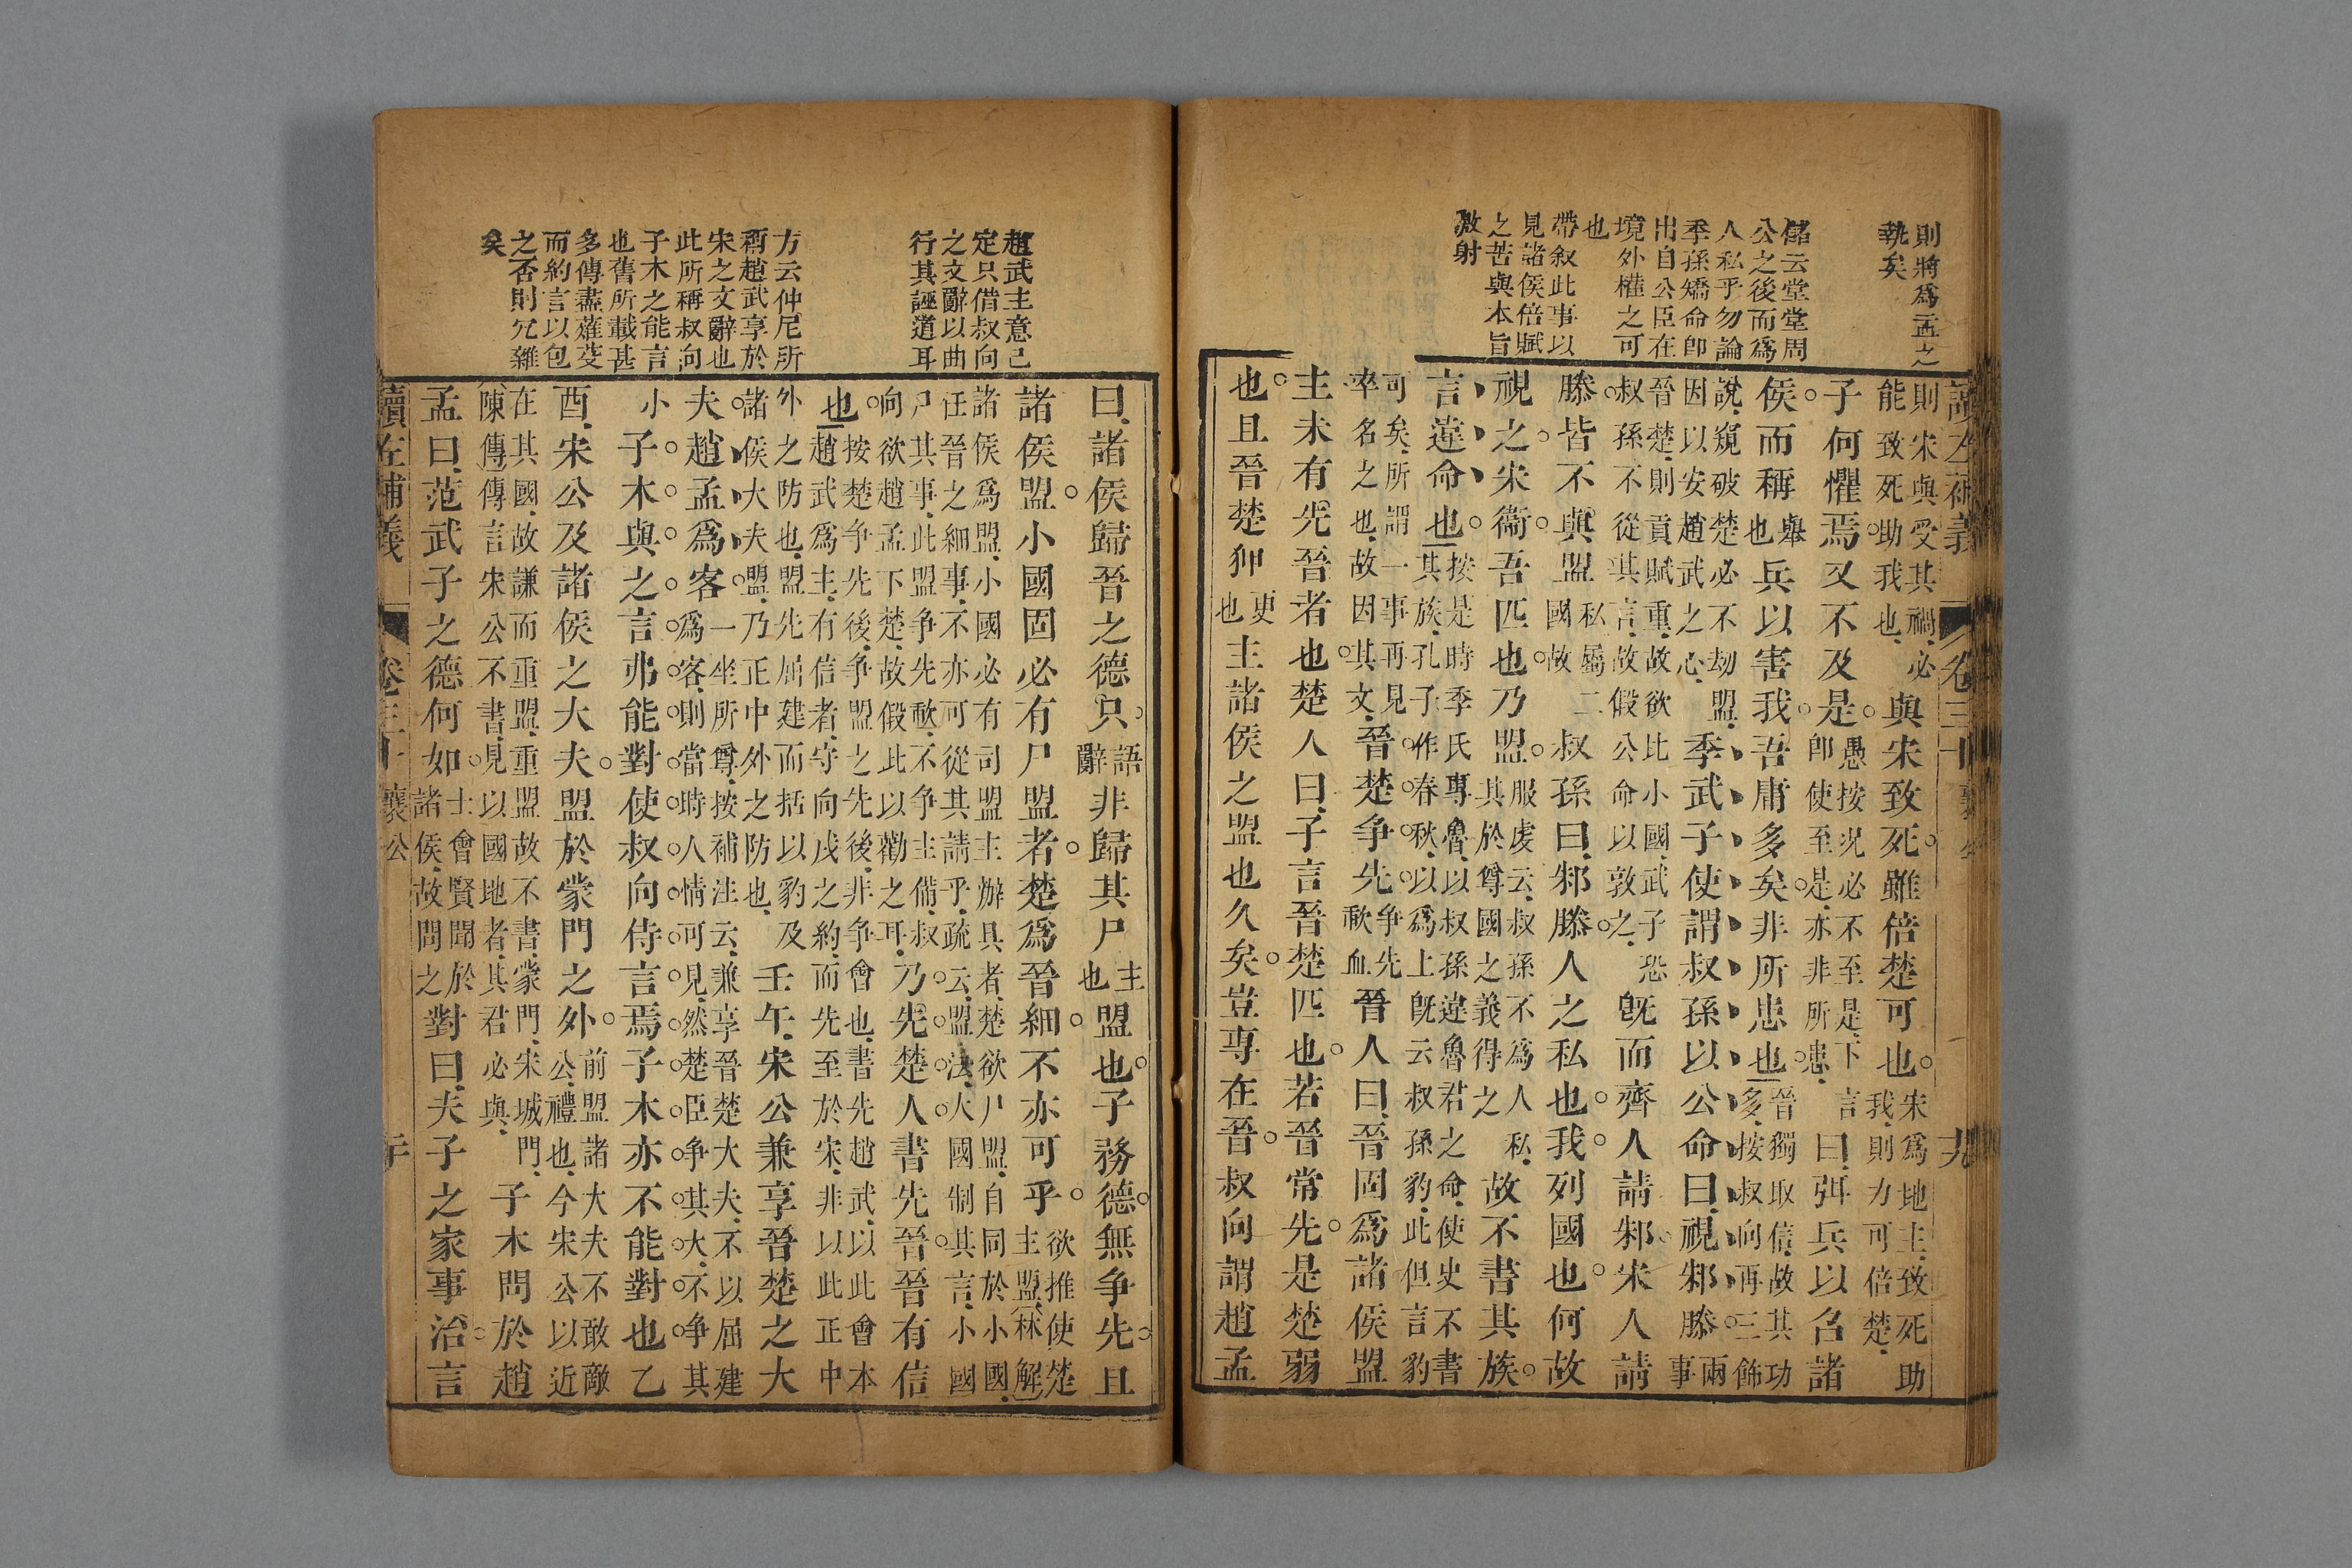 則將為盂之
執矣
儲云堂堂周
公之後而為
人私乎勿論
季孫矯命卽
出自公臣在
境外權之可
也
帶叙此事以
見諸侯倍賦
之苦與本旨
激射
讀左補義 卷三十 襄公 十九
則宋與受其禍必
能致死助我也
與宋致死雖倍楚可也
宋為地主致死助
我則力可倍楚
子何懼焉又不及是
愚按況必不至是下言
卽使至是亦非所患
曰弭兵以召諸
侯而稱
舉
也
兵以害我吾庸多矣非所患也
晉獨取信故其功
多按叔向再三飾
說窺破楚必不劫盟
因以安趙武之心
季武子使謂叔孫以公命曰視邾滕
兩
事
晉楚則貢賦重故欲比小國武子恐
叔孫不從其言故假公命以敦之
旣而齊人請邾宋人請
滕皆不與盟
私屬二
國故
叔孫曰邾滕人之私也我列國也何故
視之宋衞吾匹也乃盟
服虔云叔孫不為人私
其於尊國之義得之
故不書其族
言違命也
按是時季氏專魯以叔孫違魯君之命使史不書
其族孔子作春秋以為上旣云叔孫豹此但言豹
可矣所謂一事再見
卒名之也故因其文
晉楚争先
争先
歃血
晉人曰晉固為諸侯盟
主未有先晉者也楚人曰子言晉楚匹也若晉常先是楚弱
也且晉楚狎
更
也
主諸侯之盟也久矣豈專在晉叔向謂趙孟
趙武主意已
定只借叔向
之文辭以曲
行其誣道耳
方云仲尼所
稱趙武享於
宋之文辭也
此所稱叔向
子木之能言
也舊所載甚
多傳盡薙芟
而約言以包
之否則冗雜
矣
曰諸侯歸晉之德只
語
辭
非歸其尸
主
也
盟也子務德無争先且
諸侯盟小國固必有尸盟者楚為晉細不亦可乎
欲推使楚
主盟林解
諸侯為盟小國必有司盟主辦具者楚欲尸盟自同於小國
任晉之細事不亦可從其請乎疏云盟法大國制其言小國
尸其事此盟争先歃不争主備叔
向欲趙孟下楚故假此以勸之耳
乃先楚人書先晉晉有信
也
按楚争先後争盟之先後非争會也書先趙武以此會本
趙武為主有信者守向戌之約而先至於宋非以此正中
外之防也盟先屈建而括以豹及
諸侯大夫盟乃正中外之防也
壬午宋公兼享晉楚之大
夫趙孟為客
一坐所尊按補注云兼享晉楚大夫不以屈建
為客則當時人情可見然楚臣争其大不争其
小
子木與之言弗能對使叔向侍言焉子木亦不能對也乙
酉宋公及諸侯之大夫盟於蒙門之外
前盟諸大夫不敢敵
公禮也今宋公以近
在其國故謙而重盟重盟故不書蒙門宋城門
陳傳傳言宋公不書見以國地者其君必與
子木問於趙
孟曰范武子之德何如
士會賢聞於
諸侯故問之
對曰夫子之家事治言
讀左補義 卷三十 襄公